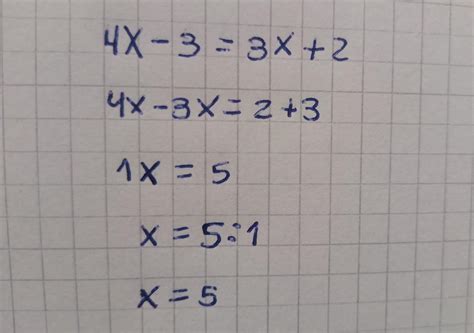 4x-3=3x+2
4x-3x=2+3
1x=5
x=5:1
x=5